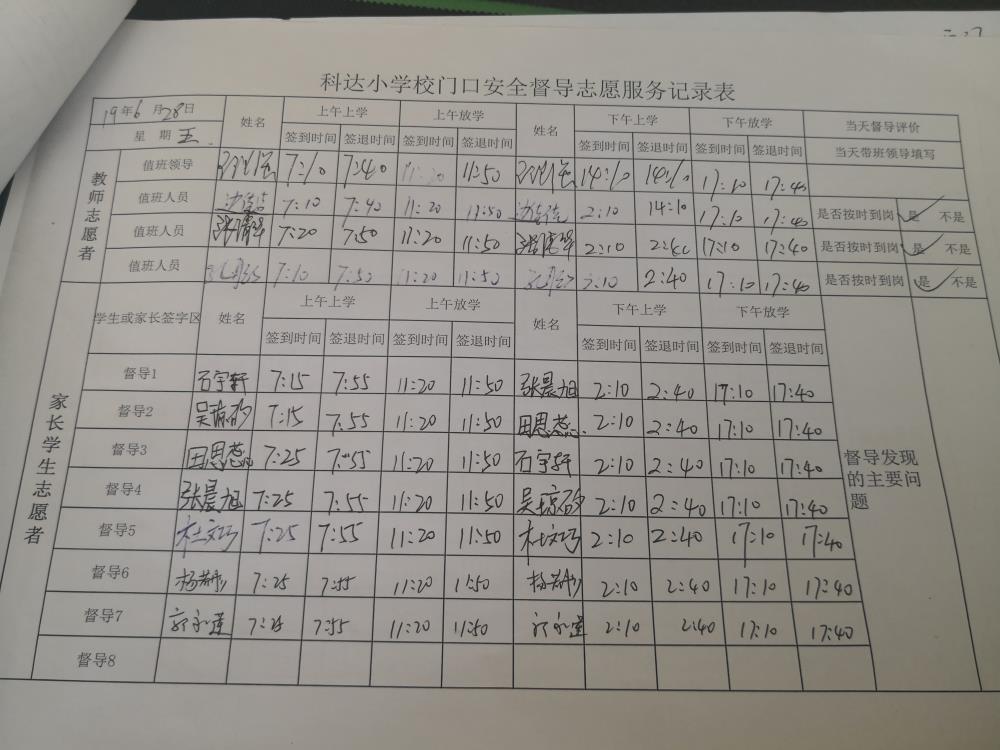 科达小学校门口安全督导志愿服务记录表
19年6月28日 姓名 上午上学 上午放学 姓名 下午上学 下午放学 当天督导评价
星 期 五 签到时间 签退时间 签到时间 签退时间 签到时间 签退时间 签到时间 签退时间 当天带班领导填写
教师志愿者
值班领导 7:10 7:40 11:20 11:50 14:10 17:10 17:40
值班人员 7:10 7:40 11:20 11:50 2:10 14:10 17:10 17:40 是否按时到岗 是 不是
值班人员 7:20 7:50 11:20 11:50 2:10 17:10 17:40 是否按时到岗 是 不是
值班人员 7:10 7:50 11:20 11:50 2:10 2:40 17:10 17:40 是否按时到岗 是 不是
学生或家长签字区 姓名 上午上学 上午放学 姓名 下午上学 下午放学
签到时间 签退时间 签到时间 签退时间 签到时间 签退时间 签到时间 签退时间
家长学生志愿者
督导1 石宇轩 7:15 7:55 11:20 11:50 张晨旭 2:10 2:40 17:10 17:40
督导2 7:15 7:55 11:20 11:50 田思蕊 2:10 2:40 17:10 17:40
督导3 田思蕊 7:25 7:55 11:20 11:50 石宇轩 2:10 2:40 17:10 17:40
督导4 张晨旭 7:25 7:55 11:20 11:50 2:10 2:40 17:10 17:40
督导5 杜文巧 7:25 7:55 11:20 11:50 杜文巧 2:10 2:40 17:10 17:40
督导6 7:25 7:55 11:20 11:50 2:10 2:40 17:10 17:40
督导7 7:25 7:55 11:20 11:50 2:10 2:40 17:10 17:40
督导8
督导发现
的主要问
题